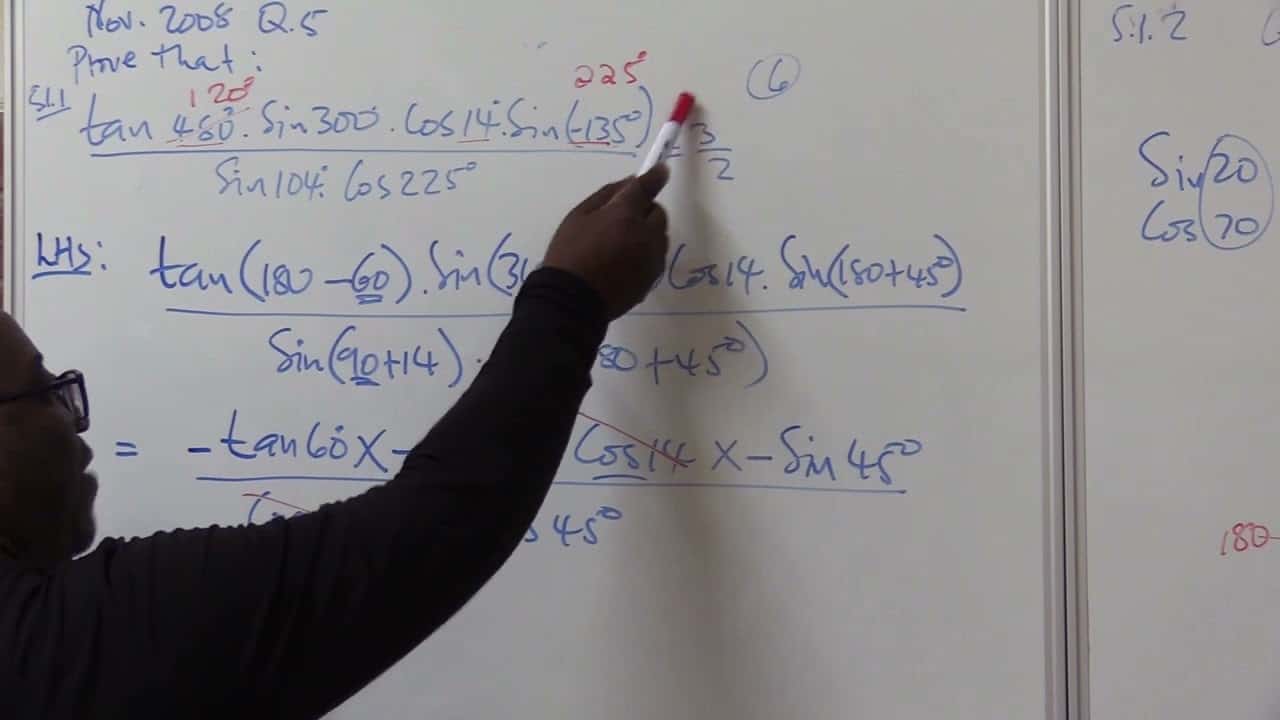 Nov. 2008 Q.5
Prove that:
120° 225° (6)
5.1.1 tan 480°. Sin 300°. Cos 14°. Sin(-135°) = 3/2
Sin 104°. Cos 225°
LHS: tan(180 - 60). Sin(3 Cos 14. Sin(180 + 45°)
Sin(90 + 14). 80 + 45°)
= - tan 60° x - Cos 14 x - Sin 45°
s 45°
5.1.2
Sin 20
Cos 70
180-